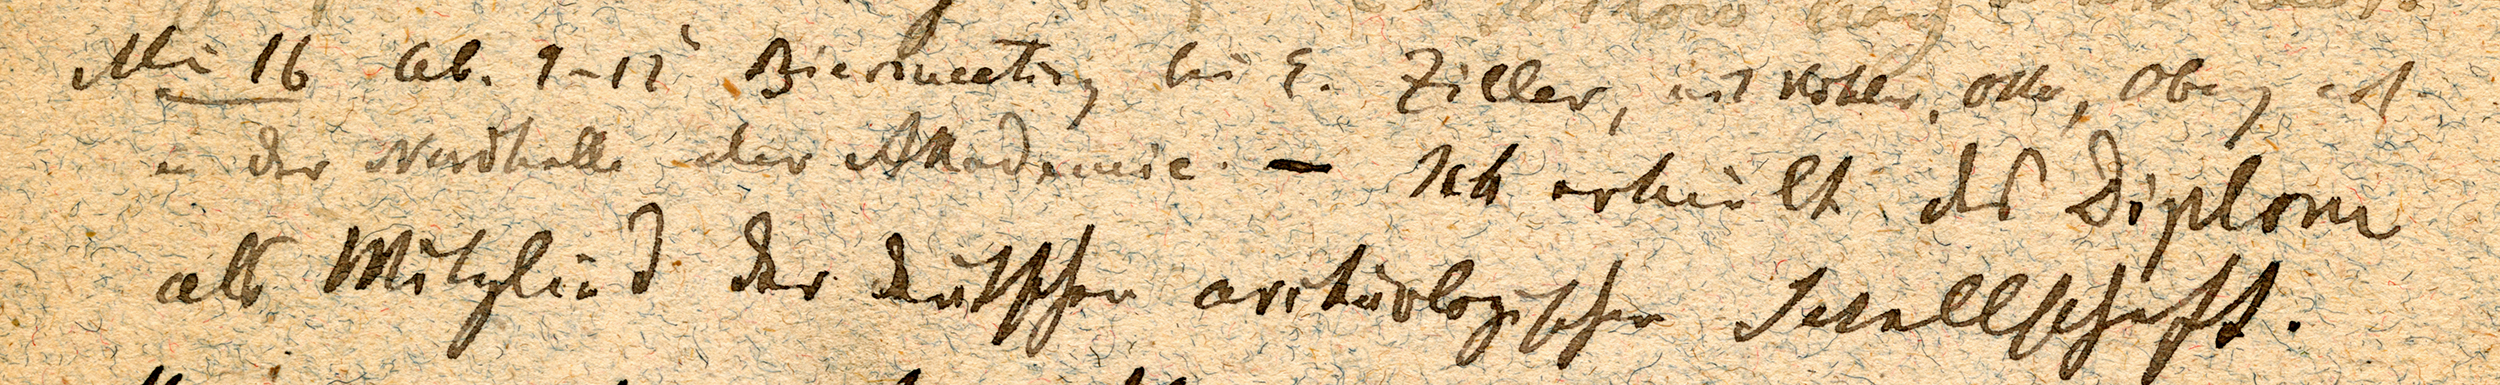 Mi 16 Ab. 9–12 Biermeeting bei E. Ziller, mit Köhler, Otto,
in der Nordhalle der Akademie. — Ich erhielt das Diplom
als Mitglied der deutschen archäologischen Gesellschaft.